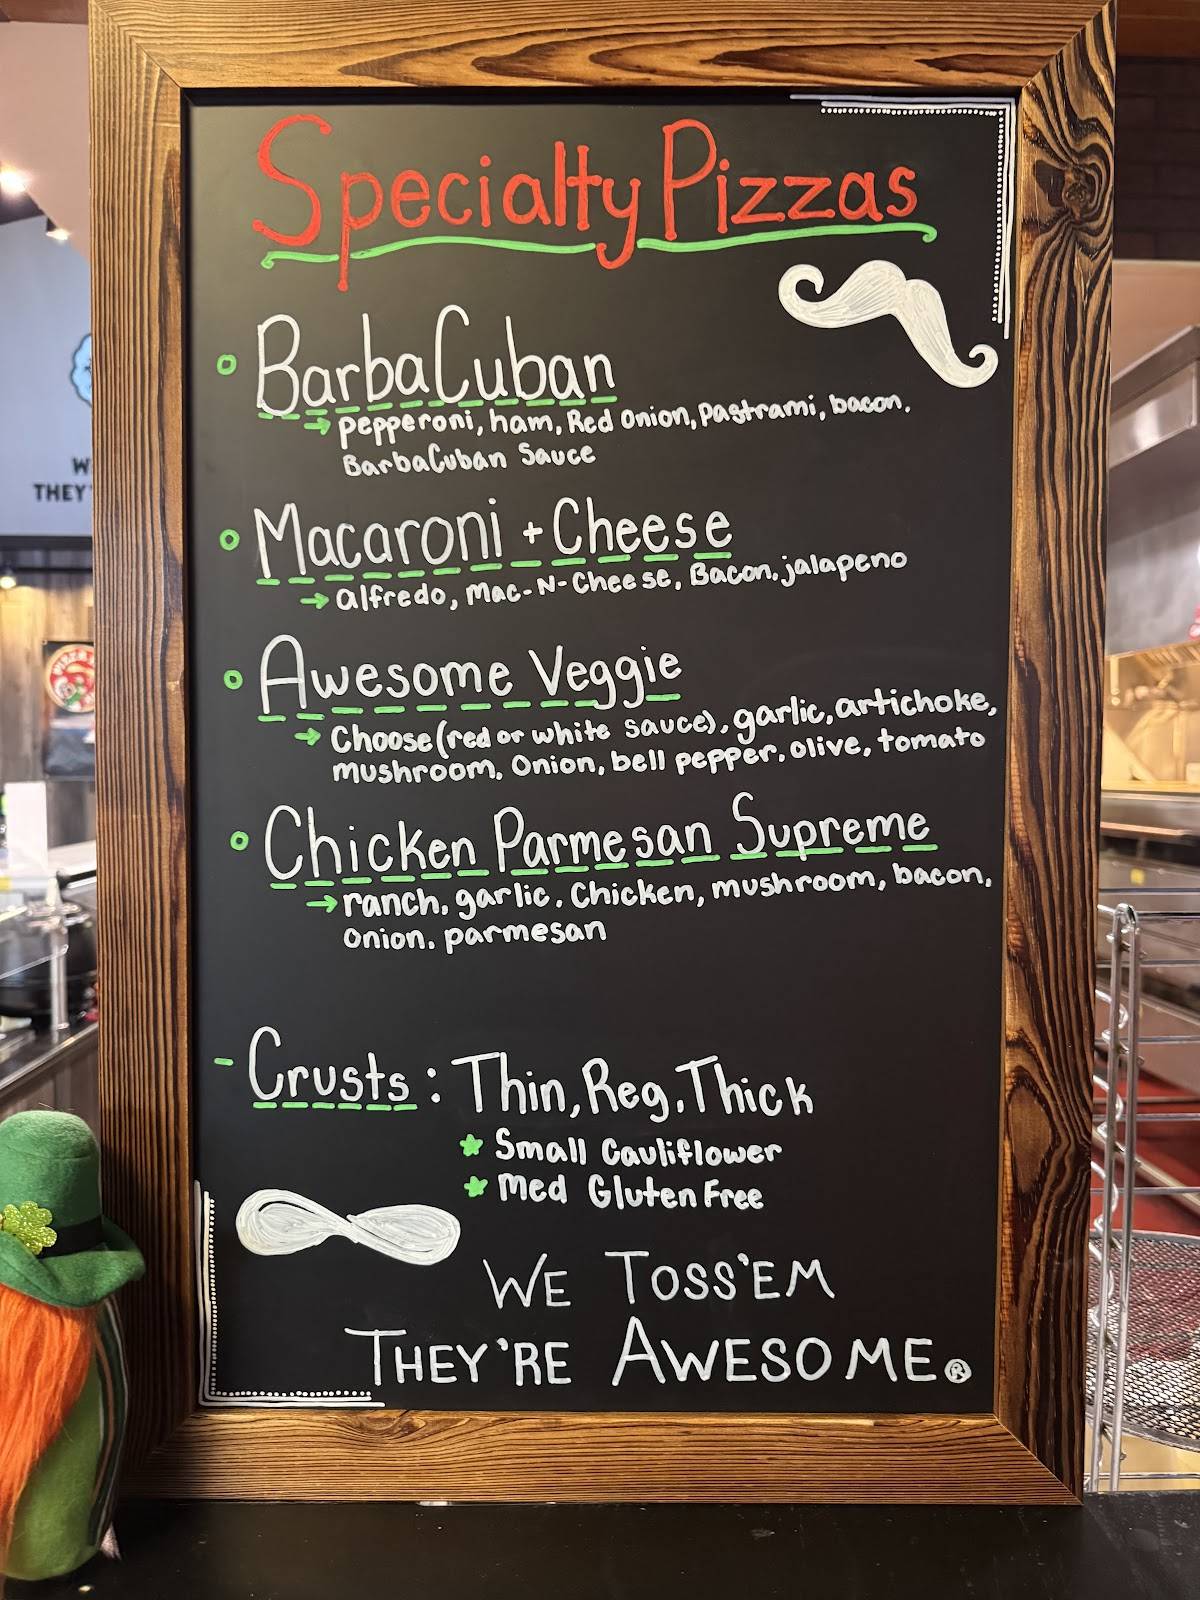 Specialty Pizzas
BarbaCuban
pepperoni, ham, Red Onion, Pastrami, bacon,
BarbaCuban Sauce
Macaroni + Cheese
alfredo, Mac-N-Cheese, Bacon, jalapeno
Awesome Veggie
Choose (red or white sauce), garlic, artichoke,
mushroom, Onion, bell pepper, olive, tomato
Chicken Parmesan Supreme
ranch, garlic, Chicken, mushroom, bacon,
Onion, parmesan
- Crusts: Thin, Reg, Thick
Small Cauliflower
Med Gluten Free
WE TOSS'EM
THEY'RE AWESOME®
W
THEY'
PIZZA